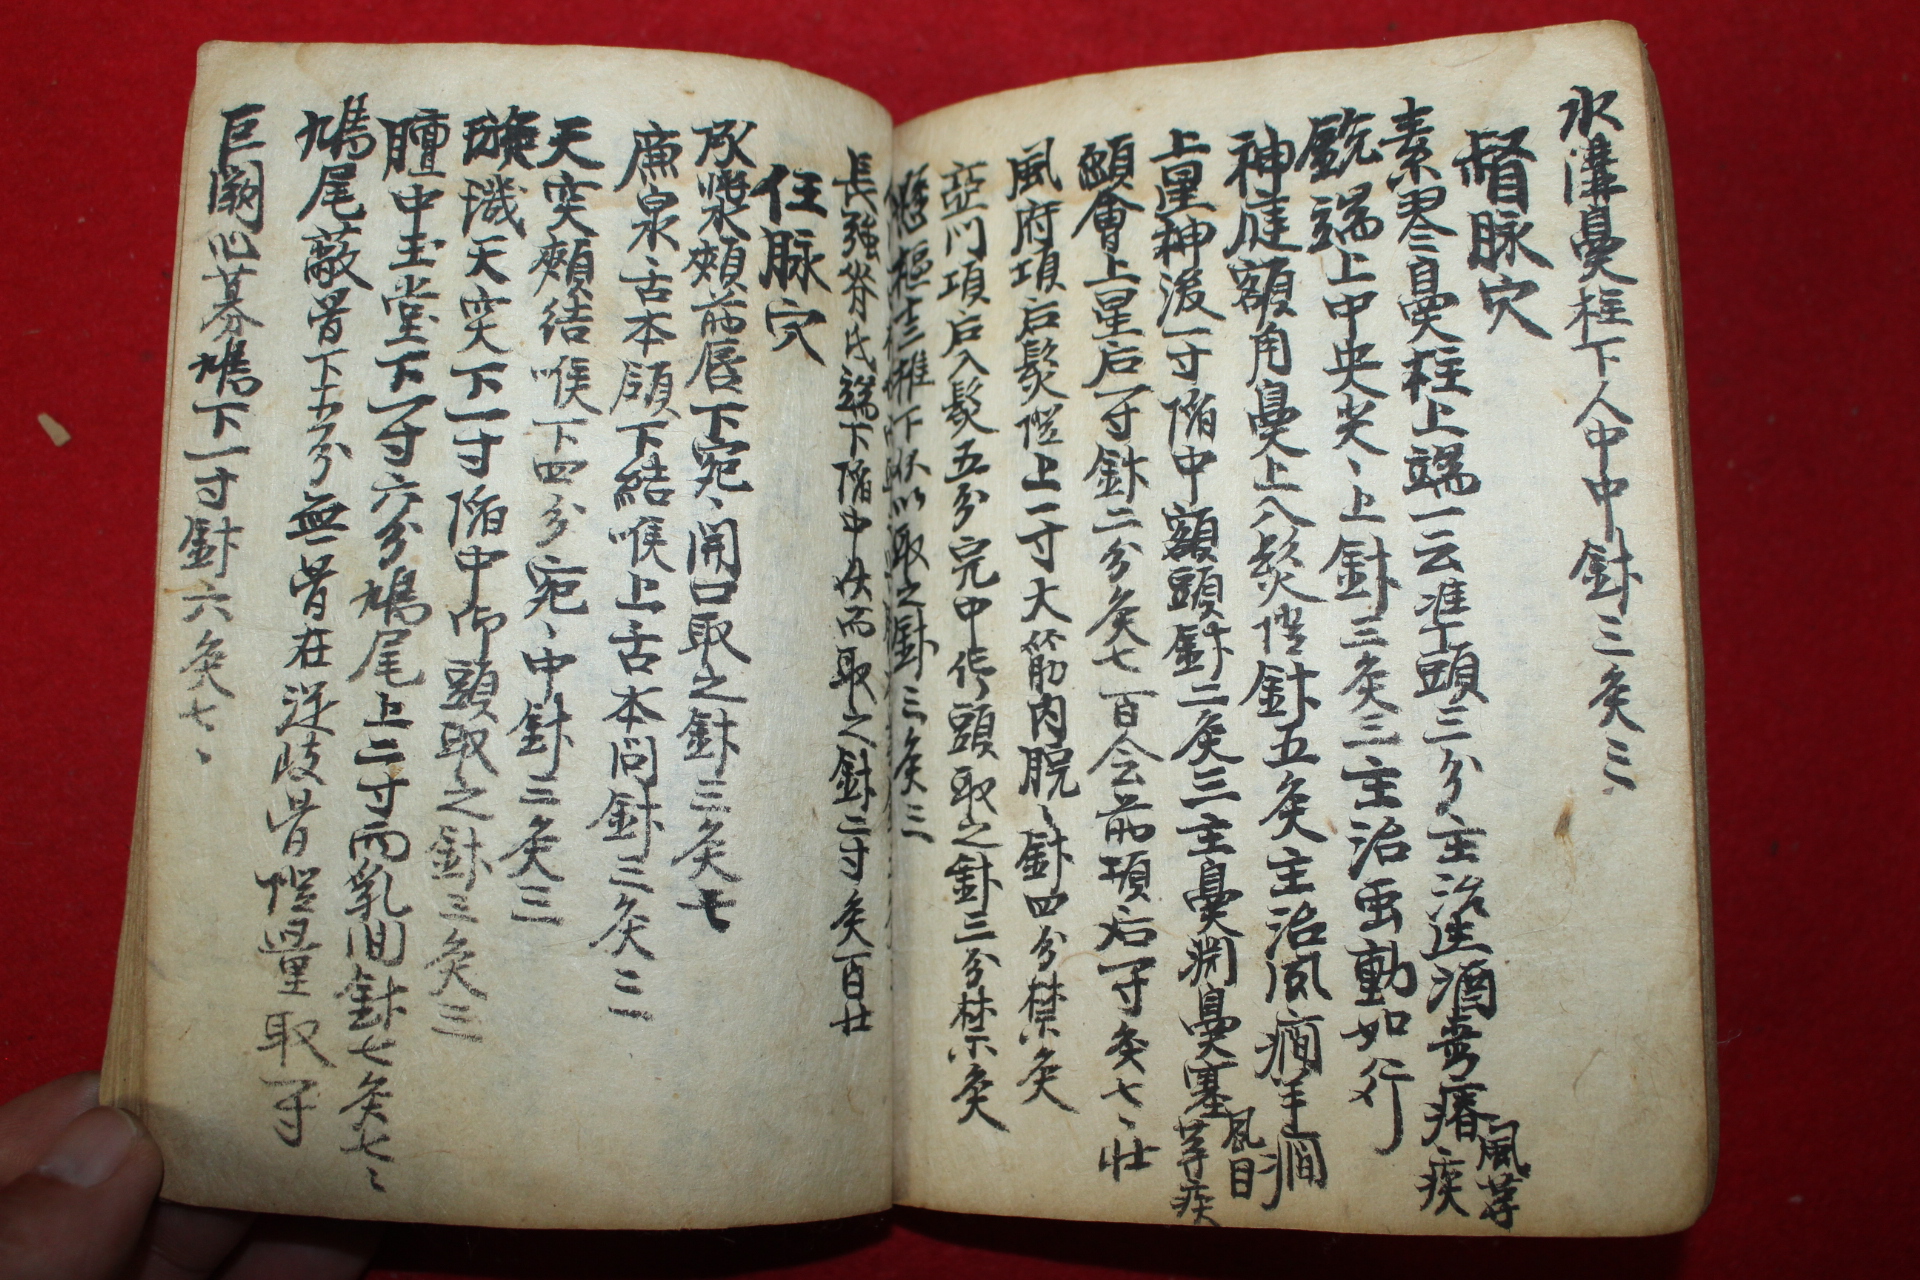 水溝鼻柱下人中中針三灸三
督脉穴
素髎鼻柱上端一云准頭三分主治歪酒 瘡 風 等疾
兌端上中央尖〻上針三灸三主治虫動如行
神庭額角鼻上入髮際針五灸主治風癎羊癎
上星神後一寸陷中額頭針二灸三主鼻渊鼻塞 風目 等疾
顖會上星后一寸針二分灸七百会前項后一寸灸七〻壯
風府項后髮際上一寸大筋內腕〻針四分禁灸
亞門項后入髮五分完中仰頭取之針三分禁灸
懸樞十三推下伏以取之針三灸三
長強脊氏端下陷中伏而取之針二寸灸百廿
任脉穴
承漿頰前唇下宛〻開口取之針三灸七
廉泉〻舌本頎下結喉上舌本间針三灸三
天突頰結喉下四分宛〻中針三灸三
璇璣天突下一寸陷中仰頭取之針三灸三
膻中玉堂下一寸六分鳩尾上二寸両乳间針七灸七〻
鳩尾蔽骨下五分無骨在逆歧骨際量取一寸
巨闕心募鳩下一寸針六灸七〻